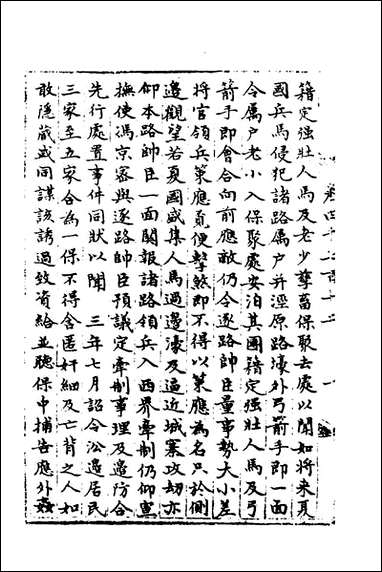 籍定强壮人馬及老少孳畜保聚去處以聞如將来夏
國兵馬侵犯諸路属户并涇原路濠外弓箭手即一面
令属户老小入保聚處安泊其團籍定强壮人馬及弓
箭手即會合向前應敵仍令逐路帥臣量事勢大小差
将官領兵策應覓便擊煞即不得以策應為名只於側
邊觀望若夏國盛集人馬過邊濠及逼近城寨攻劫亦
仰本路帥臣一面関報諸路領兵入西界牽制仍仰宣
撫使馮京密與逐路帥臣預議定牽制事理及邊防合
先行處置事件同狀以聞　三年七月詔令㳂邊居民
三家至五家合為一保不得舎匿奸細及亡背之人如
敢隠蔵或同謀該誘過致資給並聽保中捕告應外姦